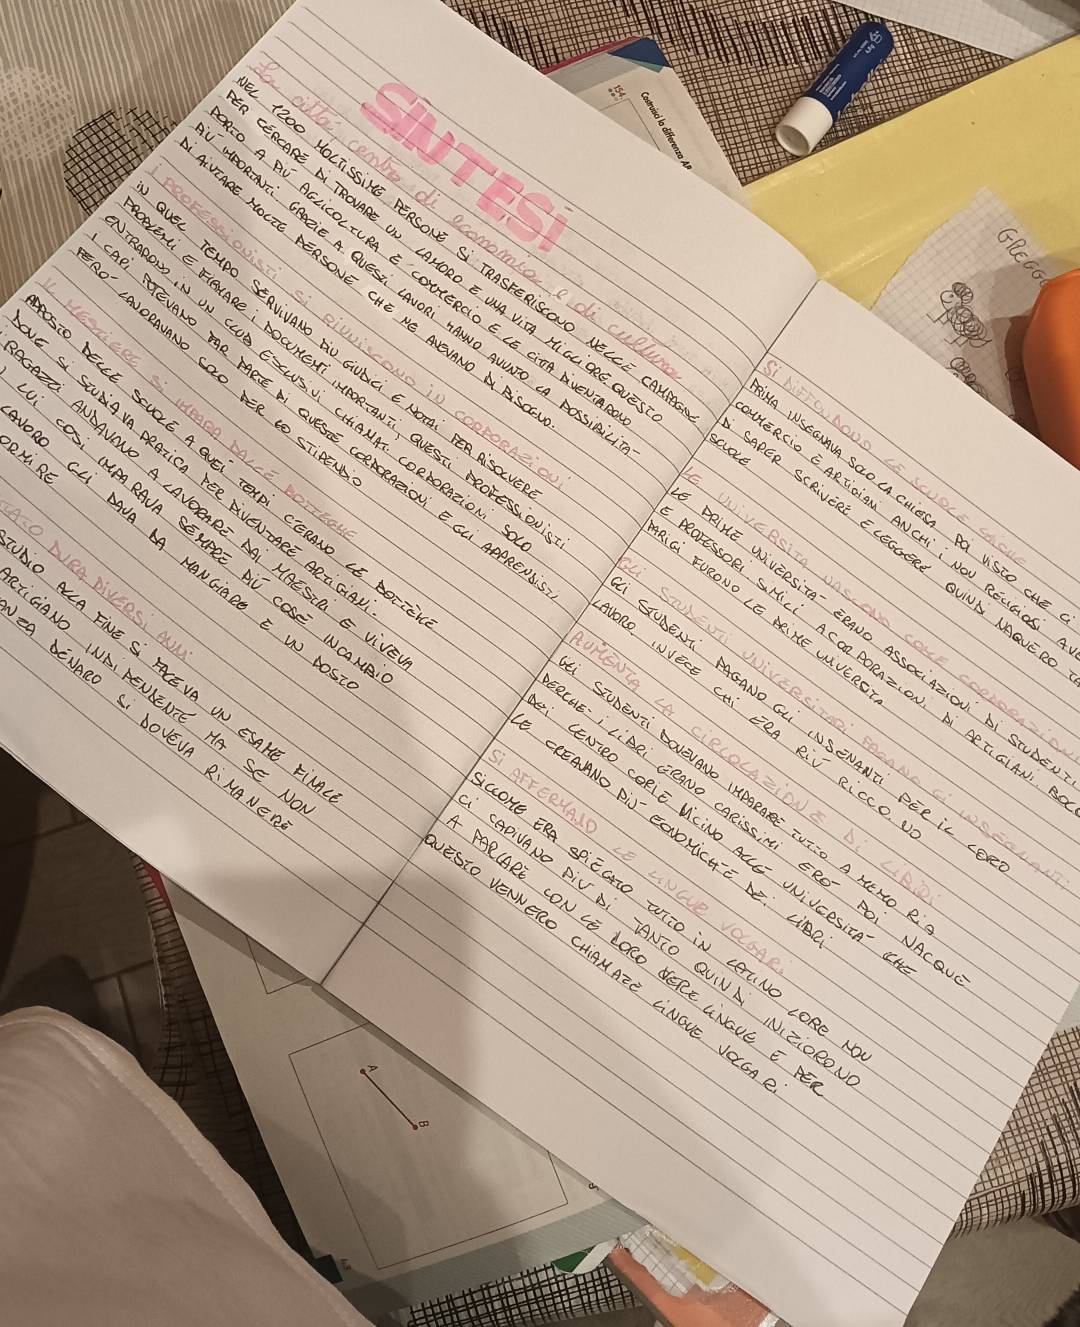 SINTESI
La città centro di economia e di cultura
NEL 1200 MOLTISSIME PERSONE SI TRASFERISCONO NELLE CAMPAGNE
PER CERCARE DI TROVARE UN LAVORO E UNA VITA MIGLIORE QUESTO
PORTO A PIÙ AGLICOLTURA E COMMERCIO E LE CITTÀ DIVENTARONO
PIÙ IMPORTANTI GRAZIE A QUESTI LAVORI HANNO AVUNTO LA POSSIBILITA-
DI AIUTARE MOLTE PERSONE CHE NE AVEVANO DI BISOGNO.
I PROFESSIONISTI SI RIUNISCONO IN CORPORAZIONI
IN QUEL TEMPO SERVIVANO PIÙ GIUDICI E NOTAI PER RISOLVERE
PROBLEMI E FIRMARE I DOCUMENTI IMPORTANTI, QUESTI PROFESSIONISTI
ENTRARONO IN UN CLUB ESCLUSIVI CHIAMATI CORPORAZIONI SOLO
I CAPI POTEVANO FAR PARTE DI QUESTE CORPORAZIONI E GLI APPRENDISTI
PERO- LAVORAVANO SOLO PER LO STIPENDIO
IL MESTIERE SI IMPARA DALLE BOTTEGHE
APPOSTO DELLE SCUOLE A QUEI TEMPI C'ERANO LE BOTTEGHE
DOVE SI STUDIAVA PRATICA PER DIVENTARE ARTIGIANI.
RAGAZZI ANDAVANO A LAVORARE DAI MAESTRI E VIVEVA
LUI COSI IMPARAVA SEMPRE PIÙ COSE INCAMBIO
LAVORO GLI DAVA DA MANGIARE E UN POSTO
ORMIRE
DURA DIVERSI ANNI
STUDIO ALLA FINE SI FACEVA UN ESAME FINALE
ARTIGIANO INDIPENDENTE MA SE NON
DENARO SI DOVEVA RIMANERE
SI DIFFONDONO LE SCUOLE LAICHE
PRIMA INSEGNAVA SOLO LA CHIESA POI VISTO CHE CI
COMMERCIO E ARTIGIANI ANCHI I NON RELIGIOSI
DI SAPER SCRIVERE E LEGGERE QUINDI NAQUERO
SCUOLE
LE UNIVERSITÀ NASCONO COME CORPORAZIONI
LE PRIME UNIVERSITA- ERANO ASSOCIAZIONI DI STUDENTI
E PROFESSORI SIMILI A CORPORAZIONI DI ARTIGIANI.
PARIGI FURONO LE PRIME UNIVERSITA
GLI STUDENTI UNIVERSITARI PAGANO GLI INSEGNANTI
GLI STUDENTI PAGANO GLI INSENANTI PER IL LORO
LAVORO INVECE CHI ERA PIÙ RICCO NO
AUMENTA LA CIRCOLAZIONE DI LIBRI
GLI STUDENTI DOVEVANO IMPARARE TUTTO A MEMORIA
PERCHE- I LIBRI ERANO CARISSIMI POI NACQUE
CENTRO COPIE VICINO ALLE UNIVERSITA- CHE
LE CREAVANO PIU- ECONOMICHE DEI LIBRI
SI AFFERMANO LE LINGUE VOLGARI
SICCOME ERA SPIEGATO TUTTO IN LATINO LORE NON
CI CAPIVANO PIÙ DI TANTO QUINDI INIZIORONO
A PARLARE CON LE LORO VERE LINGUE E PER
QUESTO VENNERO CHIAMATE LINGUE VOLGARI
154
Costruisci la differenza
A
B